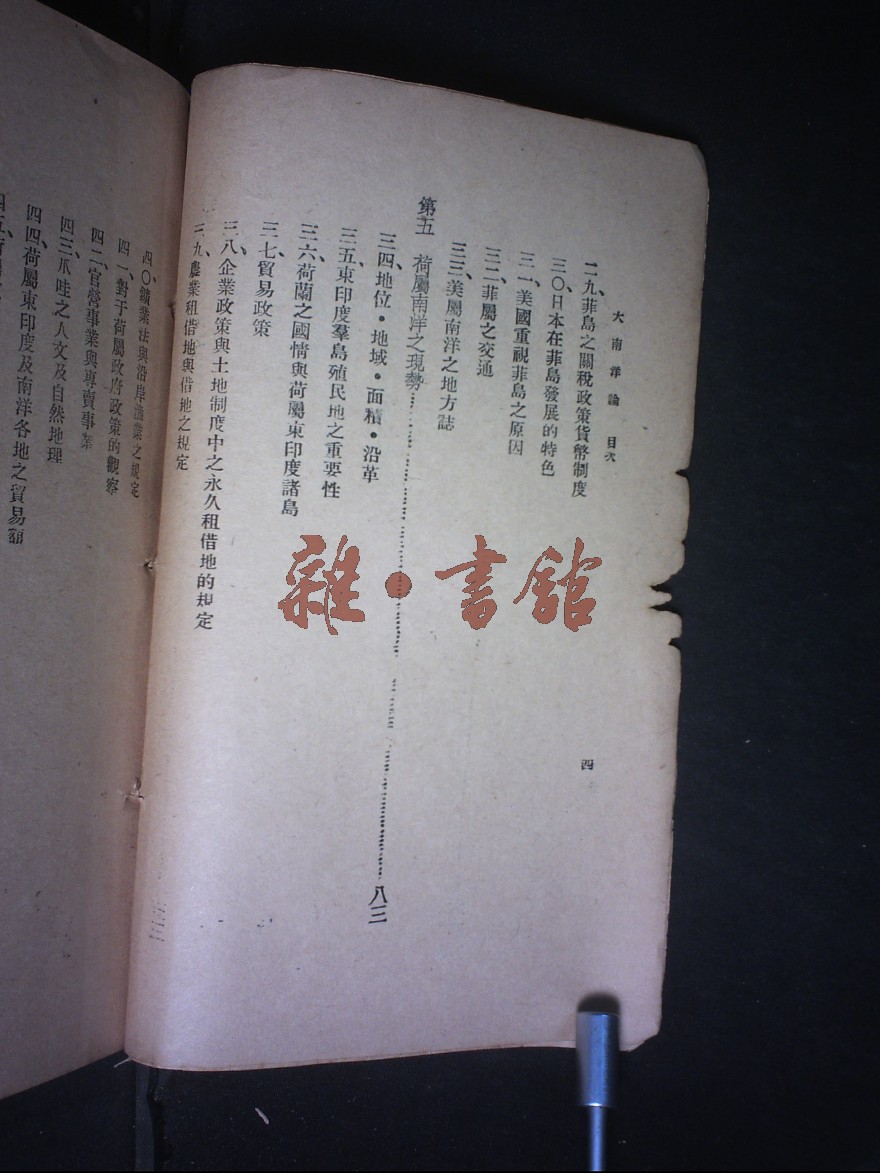 大南洋論 目次
四
二九、菲島之關稅政策貨幣制度
三〇、日本在菲島發展的特色
三一、美國重視菲島之原因
三二、菲屬之交通
三三、美屬南洋之地方誌
第五 荷屬南洋之現勢……八三
三四、地位·地域·面積·沿革
三五、東印度羣島殖民地之重要性
三六、荷蘭之國情與荷屬東印度諸島
三七、貿易政策
三八、企業政策與土地制度中之永久租借地的規定
三九、農業租借地與借地之規定
四〇、鑛業法與沿岸漁業之規定
四一、對于荷屬政府政策的觀察
四二、官營事業與專賣事業
四三、爪哇之人文及自然地理
四四、荷屬東印度及南洋各地之貿易額
雜·書館